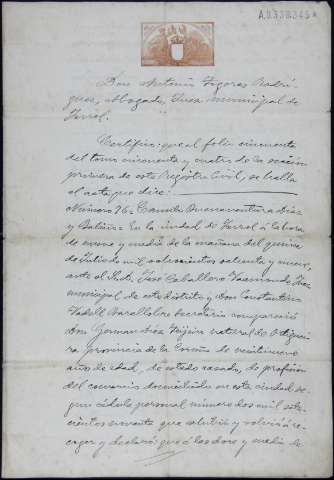 Don Antonio Togores Rodrí-
guez, abogado, Juez municipal de
Ferrol.
Certifico: que al folio cincuenta
del tomo cincuenta y cuatro de la sección
primera de este Registro Civil, se halla
el acta que dice:
Número 76 = Camilo Buenaventura Díaz
y Baliño = En la ciudad de Ferrol á la hora
de nueve y media de la mañana del quince
de Julio de mil ochocientos ochenta y nueve,
ante el Sr. D. José Caballero Juez
municipal de este distrito y don Constantino
Vadell Secretario compareció
Don German Díaz natural de
provincia de la Coruña de veintinueve
años de edad, de estado casado, de profesión
del comercio domiciliado en esta ciudad se-
gún cédula personal número dos mil ocho-
cientos noventa que exhibió y volvió á re-
coger y declaró que á las doce y media de